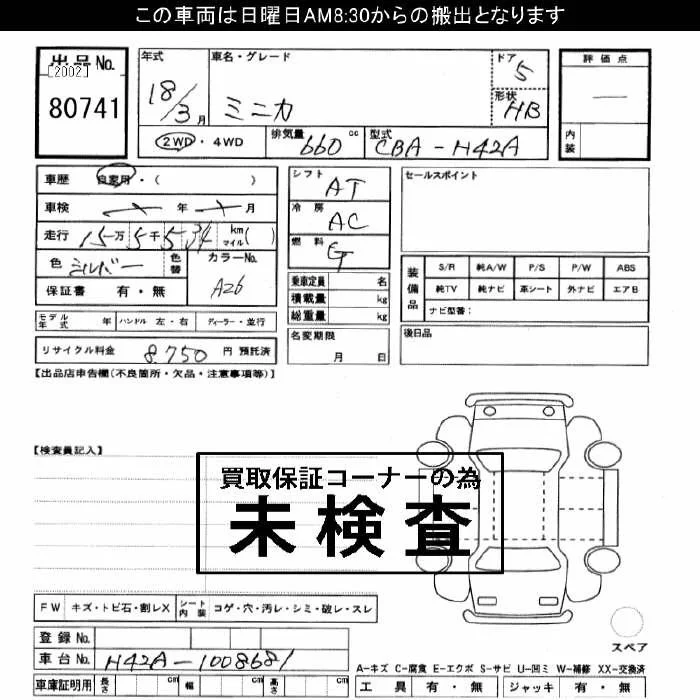 この車両は日曜日AM8:30からの搬出となります
出品No.
[2002]
80741
年式 18/3月
車名・グレード ミニカ
ドア 5
形状 HB
2WD・4WD
排気量 660 cc
型式 CBA-H42A
評価点
—
内装
車歴 自家用・( )
車検 年 月
走行 15万5千534 km マイル( )
色 シルバー
色替
カラーNo. A26
保証書 有・無
シフト AT
冷房 AC
燃料 G
乗車定員 名
積載量 kg
総重量 kg
セールスポイント
装備品
S/R 純A/W P/S P/W ABS
純TV 純ナビ 革シート 外ナビ エアB
ナビ型番:
モデル年式 年 ハンドル 左・右 ディーラー・並行
名変期限 月 日
後日品
リサイクル料金 8,750 円 預託済
【出品店申告欄(不良箇所・欠品・注意事項等)】
【検査員記入】
買取保証コーナーの為
未検査
FW キズ・トビ石・割レX
シート内装 コゲ・穴・汚レ・シミ・破レ・スレ
スペア
登録No.
車台No. H42A-1008681
A-キズ C-腐食 E-エクボ S-サビ U-凹ミ W-補修 XX-交換済
車庫証明用 長さ cm 幅 cm 高さ cm
工具 有・無 ジャッキ 有・無